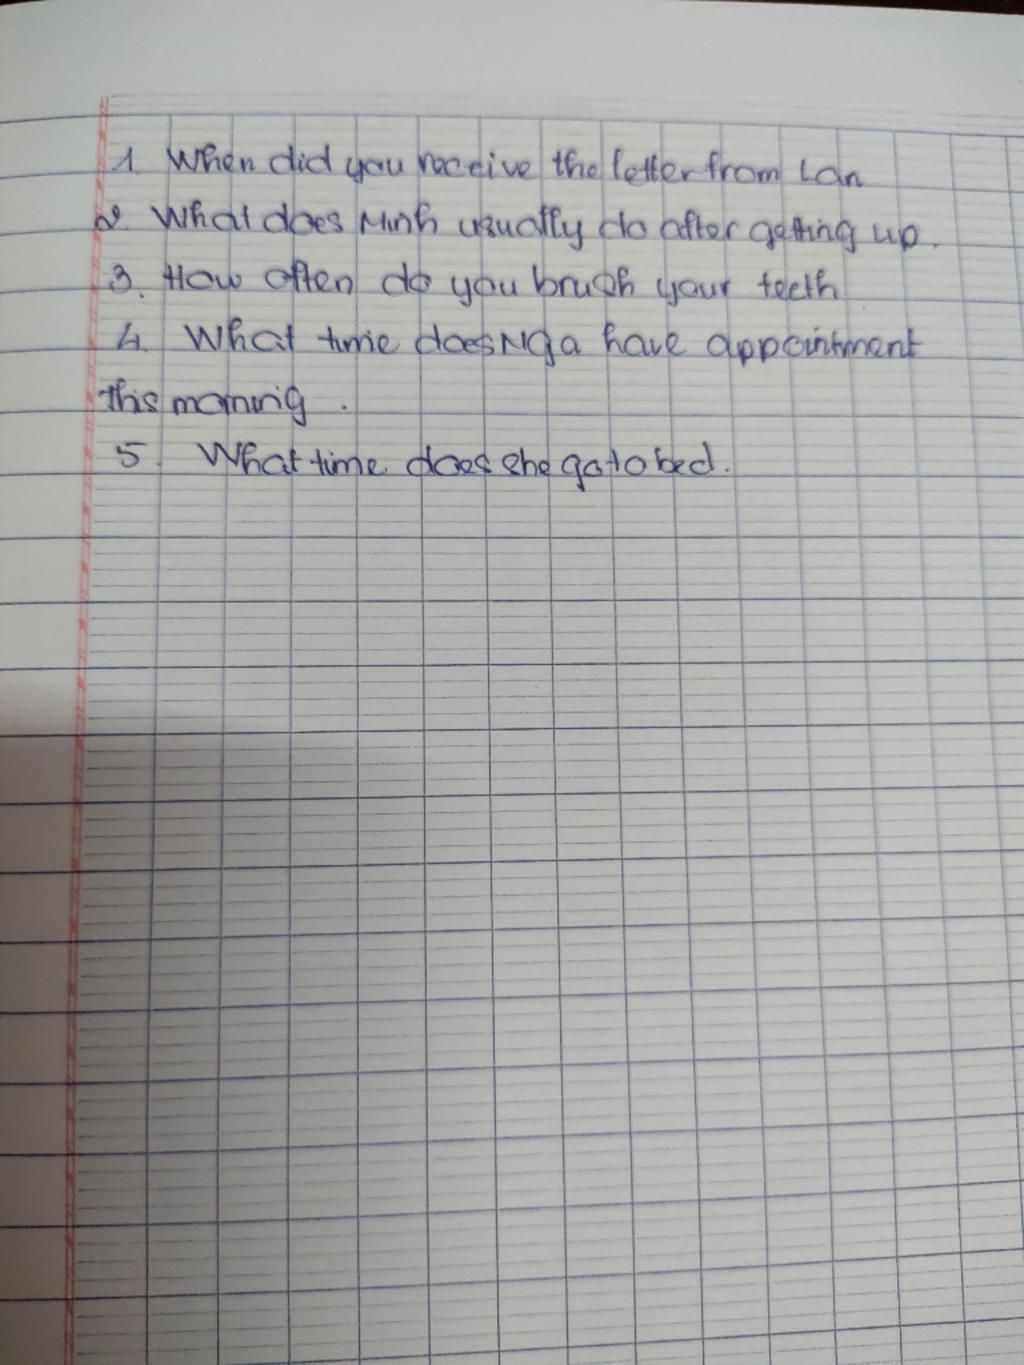 1. When did you receive the letter from Lan
2. What does Minh usually do after getting up.
3. How often do you brush your teeth
4. What time does Nga have appointment
this morning.
5. What time does she go to bed.